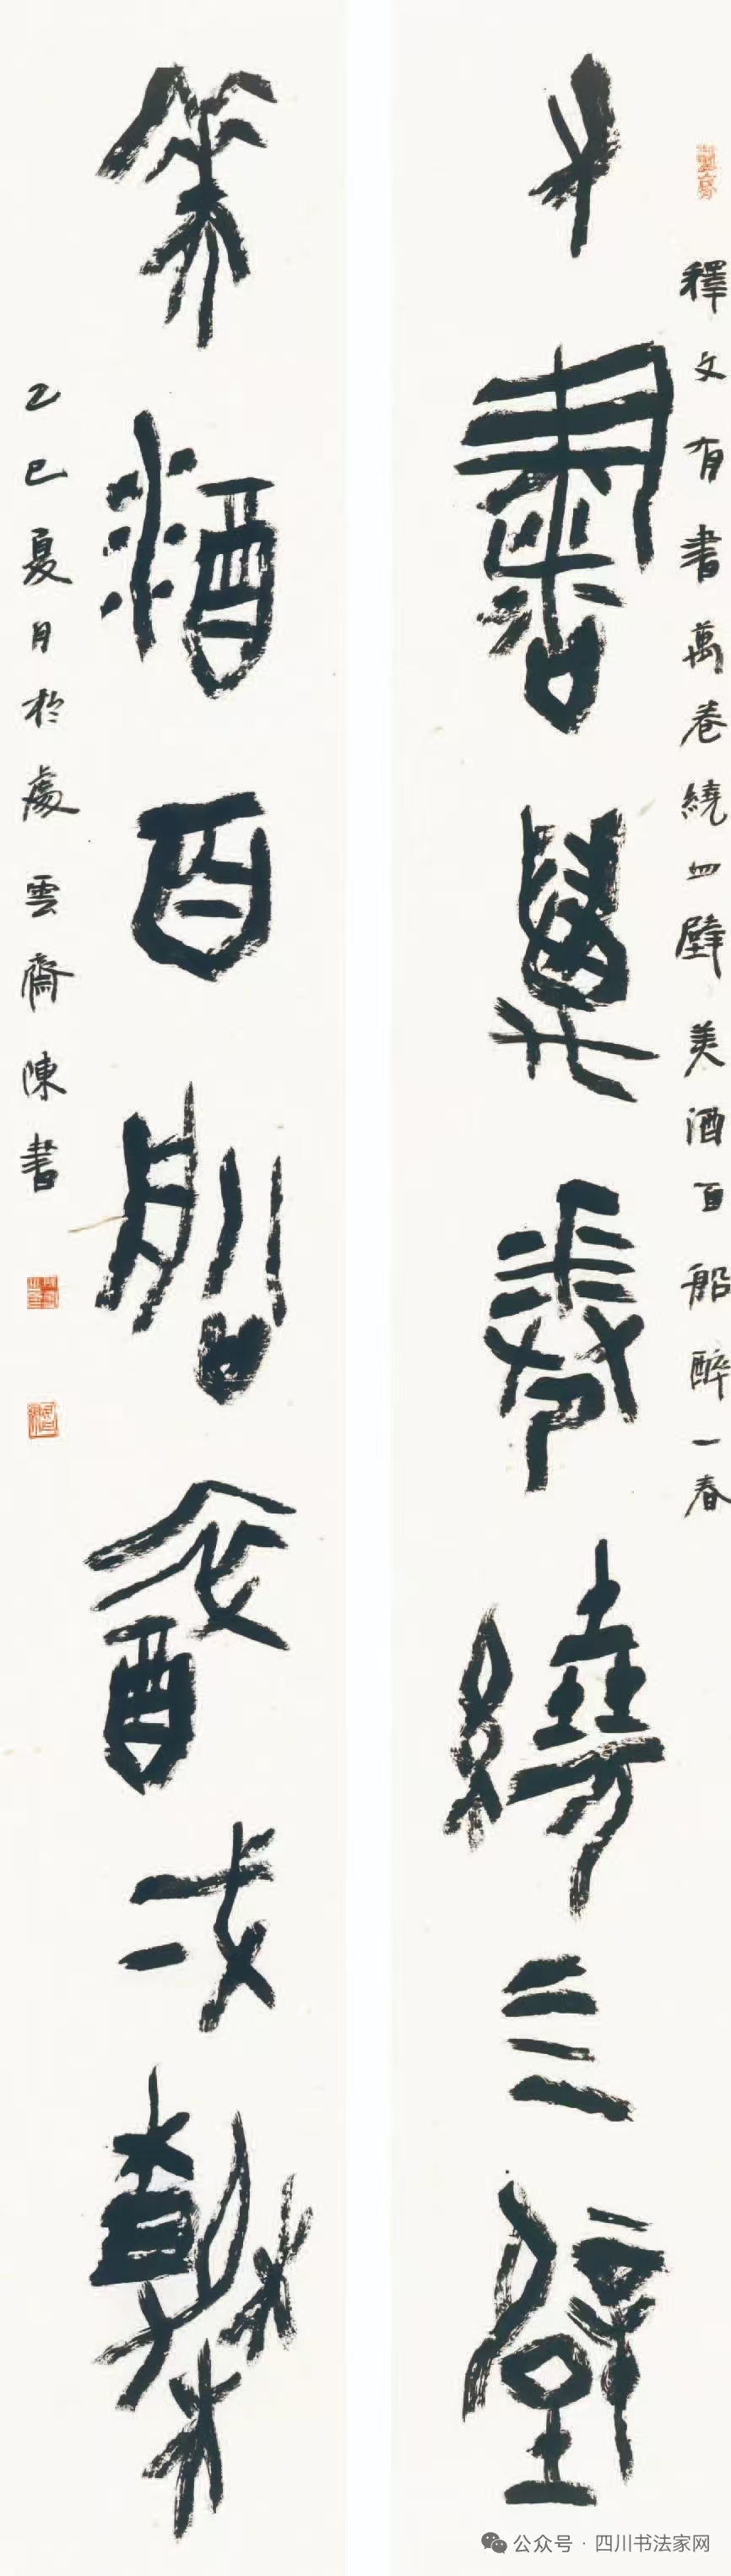 釋文有書萬卷繞四壁美酒百船醉一春
有書萬卷繞四壁
美酒百船醉一春
乙巳夏月於處雲齋陳書
公众号·四川书法家网